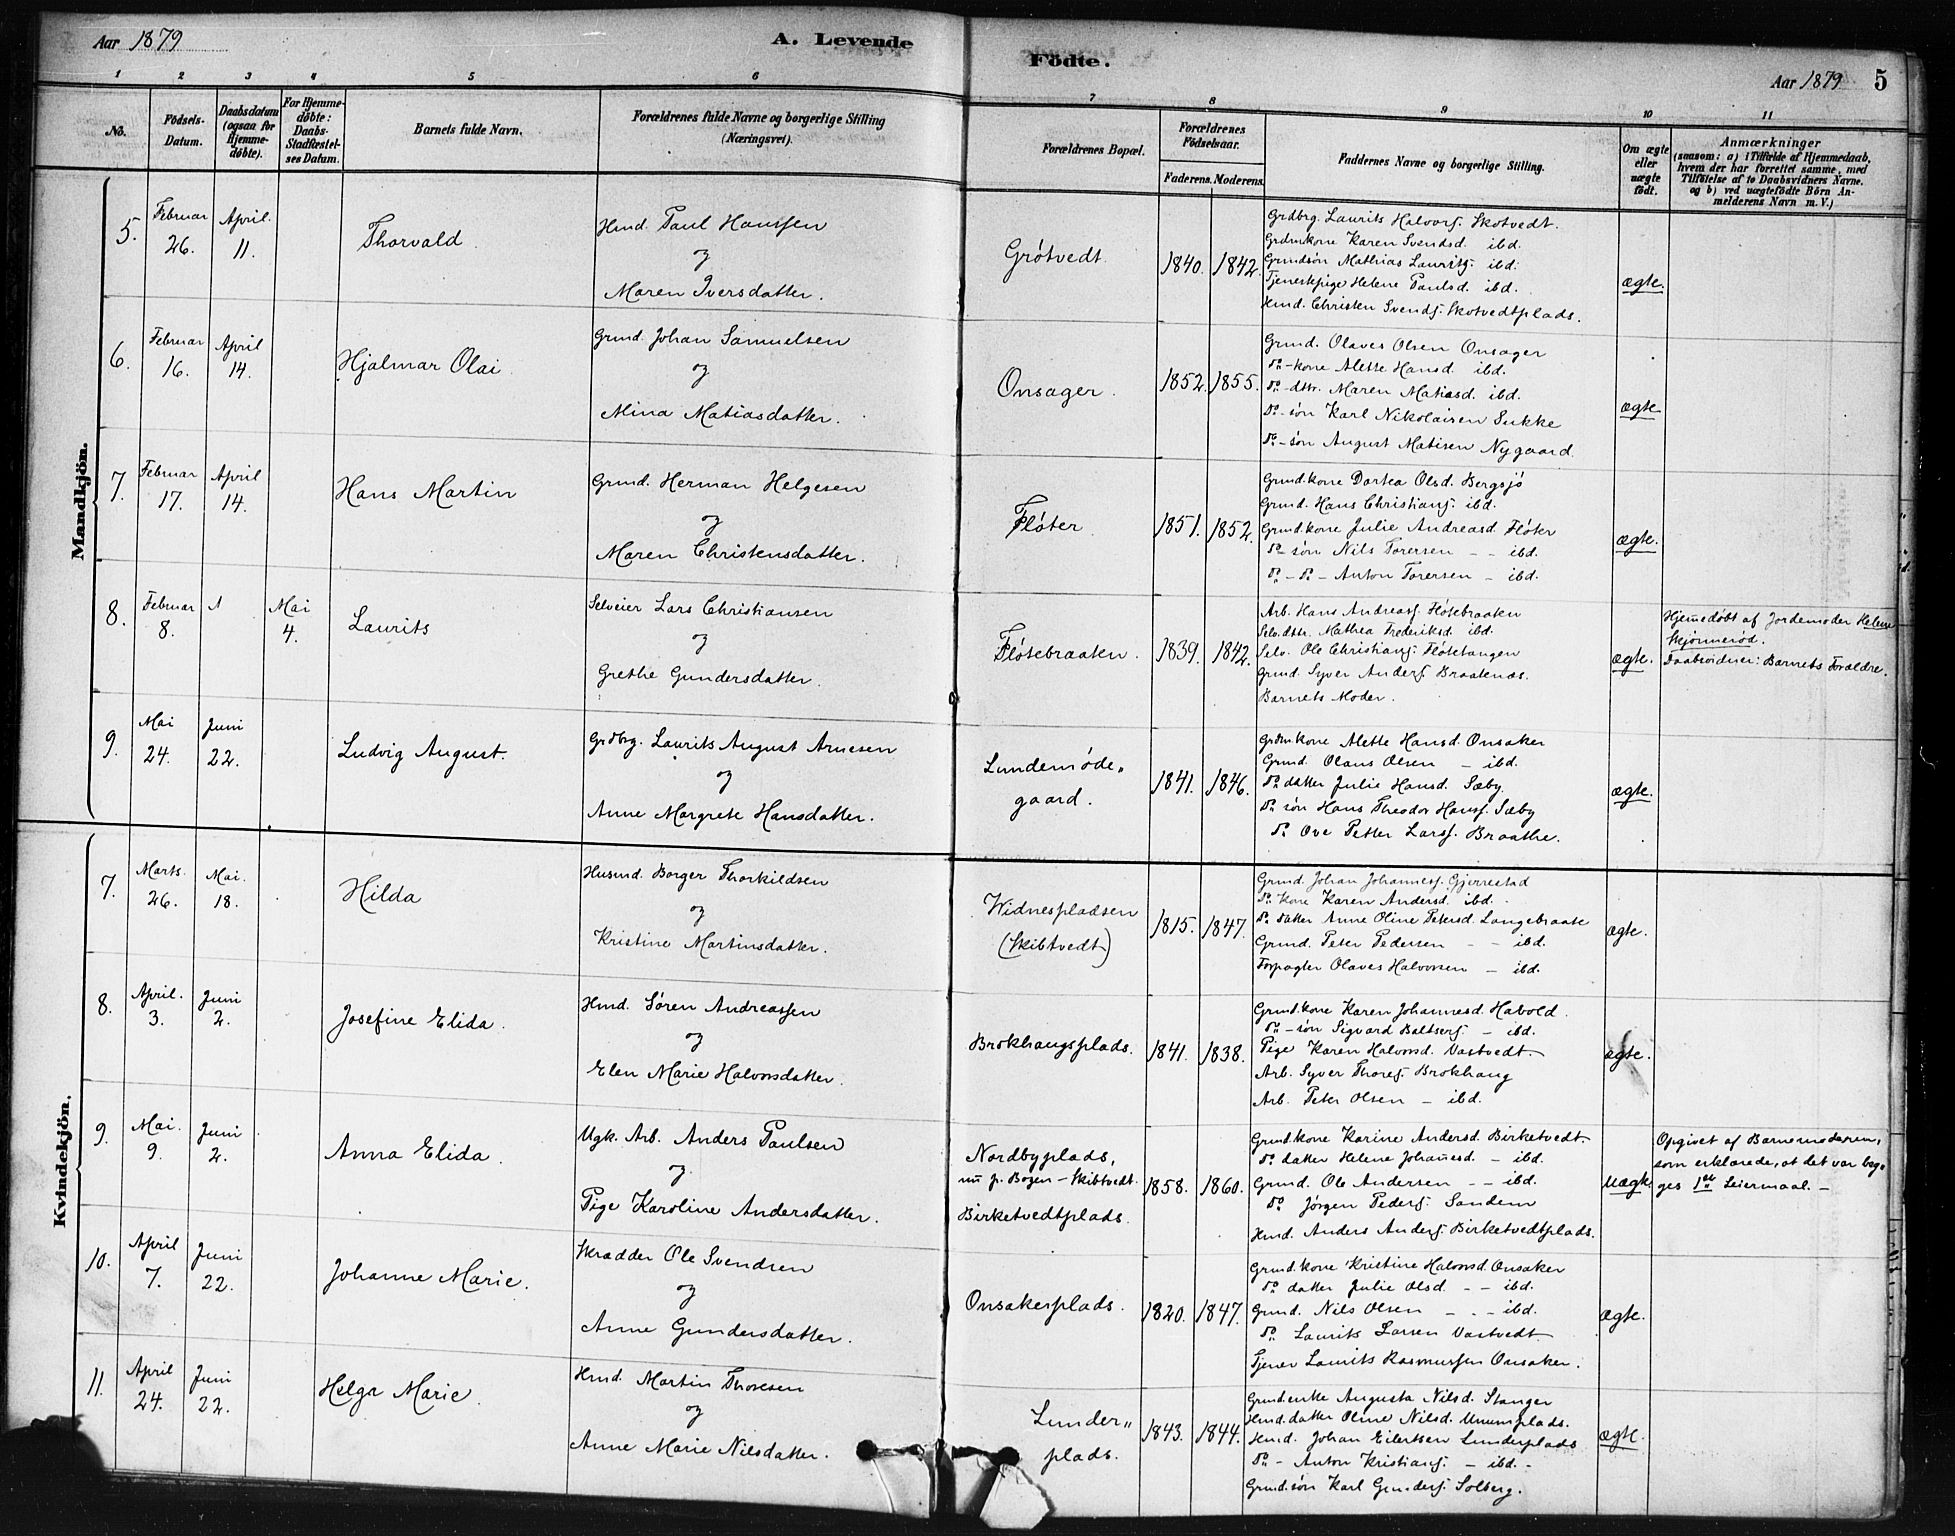 Aar 1879
A. Levende
Födte.
Aar 1879
5
1 2 3 4 5 6 7 8 9 10 11
No.
Födsels-Datum.
Daabsdatum (ogsaa for Hjemme-döbte).
For Hjemme-döbte: Daabs-Stadfæstel-ses Datum.
Barnets fulde Navn.
Forældrenes fulde Navne og borgerlige Stilling (Næringsvei).
Forældrenes Bopæl.
Forældrenes Födselsaar.
Faderens. Moderens.
Faddernes Navne og borgerlige Stilling.
Om ægte eller uægte födt.
Anmærkninger
(saasom: a) i Tilfælde af Hjemmedaab,
hvem der har forrettet samme, med
Tilföielse af to Daabsvidners Navne.
og b) ved uægtefödte Börn An-
melderens Navn m. V.)
Mandkjön.
5. Februar 26. April. 11.
Thorvald
Hmd. Paul Hanssen
og
Maren Iversdatter.
Grøtvedt
1840. 1842.
Grdbrg. Laurits Halvors. Skotvedt.
Grdmkone Karen Svendsd. ibd.
Grundsøn Mathias Laurits. ibd.
Tjenestepige Helene Paulsd. ibd.
Hmd. Christen Svends. Skotvedtplads.
ægte.
6. Februar 16. April 14.
Hjalmar Olai
Grmd. Johan Samuelsen
og
Mina Matiasdatter.
Onsager.
1852. 1855.
Grmd. Olaves Olsen Onsager
do-kone Alette Hansd. ibd.
do-dttr. Maren Matiasd. ibd.
do-søn Karl Nikolaisen Sukke
do-søn August Matisen Nygaard.
ægte
7. Februar 17. April 14.
Hans Martin
Grmd. Herman Helgesen
og
Maren Christensdatter.
Fløter
1851. 1852.
Grmd.kone Dortea Olsd. Bergsjø
Grmd. Hans Christians. ibd.
Grmd.kone Julie Andreasd. Fløter
do-søn Nils Torersen - - ibd.
do-do- Anton Torersen - ibd.
ægte.
8. Februar 8. Mai 4.
Laurits
Selveier Lars Christiansen
og
Grethe Gundersdatter.
Fløtebraaten.
1839. 1842.
Arb. Hans Andreass. Fløtebraaten
Selv.dttr. Mathea Frederiksd. ibd.
Selv. Ole Christians. Fløtetangen
Grmd. Syver Anders. Braatenæs.
Barnets Moder.
ægte.
Hjemmedøbt af Jordemoder Helene
Skjønnerød.
Daabsvidner: Barnets Forældre.
9. Mai 24. Juni 22.
Ludvig August.
Grdbrg. Laurits August Arnesen
og
Anne Margrete Hansdatter.
Lundemøde„
gaard.
1841. 1846.
Grdmkone Alette Hansd. Onsaker
Grmd. Olaus Olsen - ibd.
do datter Julie Hansd. Sæby.
do søn Hans Theodor Hans. Sæby
do Ove Petter Lars. Braathe.
ægte.
Kvindekjön.
7. Marts. 26. Mai. 18.
Hilda
Husmd. Borger Thorkildsen
og
Kristine Martinsdatter.
Widnespladsen
(Skibtvedt)
1815. 1847.
Grmd. Johan Johanness. Gjerrestad
do Kone Karen Andersd. ibd.
do datter Anne Oline Petersd. Langebraate
Grmd. Peter Pedersen - - ibd.
Forpagter Olaves Halvorsen - ibd.
ægte.
8. April. 3. Juni 2.
Josefine Elida.
Hmd. Søren Andreassen
og
Elen Marie Halvorsdatter.
Brokhaugsplads.
1841. 1838.
Grmd.kone Karen Johannesd. Habold.
do-søn Sigvard Baltsers. - ibd.
Pige Karen Halvorsd. Vastvedt.
Arb. Syver Thores. Brokhaug
Arb. Peter Olsen - ibd.
ægte.
9. Mai. 9. Juni 2.
Anna Elida.
Ugk. Arb. Anders Paulsen
og
Pige Karoline Andersdatter.
Nordbyplads,
nu p. Bogen - Skibtvedt.
Birketvedtplads.
1858. 1860.
Grmd.kone Karine Andersd. Birketvedt.
do datter Helene Johannesd. - ibd.
Grmd. Ole Andersen - - ibd.
do Jørgen Peders. Sandem
Hmd. Anders Anders. Birketvedtplads.
Uægte.
Opgivet af Barnemoderen,
som erklærede, at det var beg„
ges 1ste Leiermaal. -
10. April 7. Juni 22.
Johanne Marie.
Skrædder Ole Svendsen
og
Anne Gundersdatter.
Onsakerplads.
1820. 1847.
Grmd.kone Kristine Halvorsd. Onsaker
do datter Julie Olsd. - - ibd.
Grmd. Nils Olsen - - - ibd.
do Laurits Larsen Vastvedt
Tjener Laurits Rasmussen Onsaker.
ægte.
11. April 24. Juni 22.
Helga Marie.
Hmd. Martin Thoresen
og
Anne Marie Nilsdatter.
Lunder„
plads.
1843. 1844.
Grmd.enke Augusta Nilsd. Stanger
Hmd.datter Oline Nilsd. Unumplads.
Hmd. Johan Eilertsen Lunderplads
do - Anton Kristians. - ibd. -
Grmd.søn Karl Gunders. Solberg.
ægte.